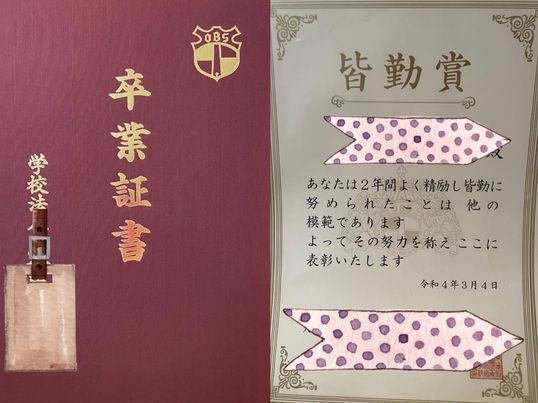 OBS
卒業証書
学校法
皆勤賞
殿
あなたは２年間よく精励し皆勤に
努められたことは 他の
模範であります
よって その努力を称え ここに
表彰いたします
令和４年３月４日